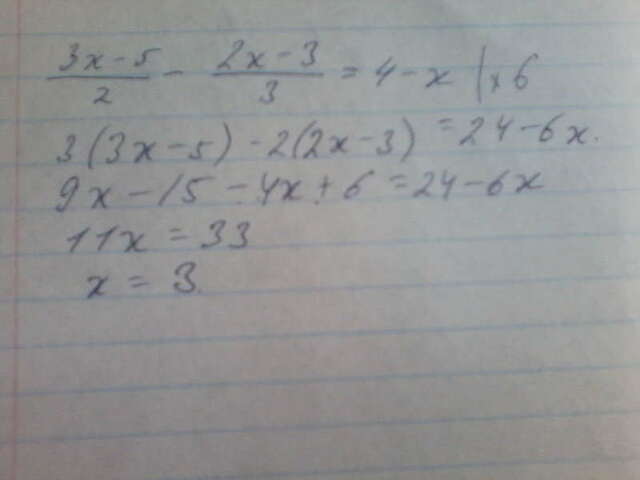 (3x-5)/2 - (2x-3)/3 = 4-x |x6
3(3x-5) -2(2x-3) = 24-6x.
9x-15-4x+6=24-6x
11x=33
x=3.